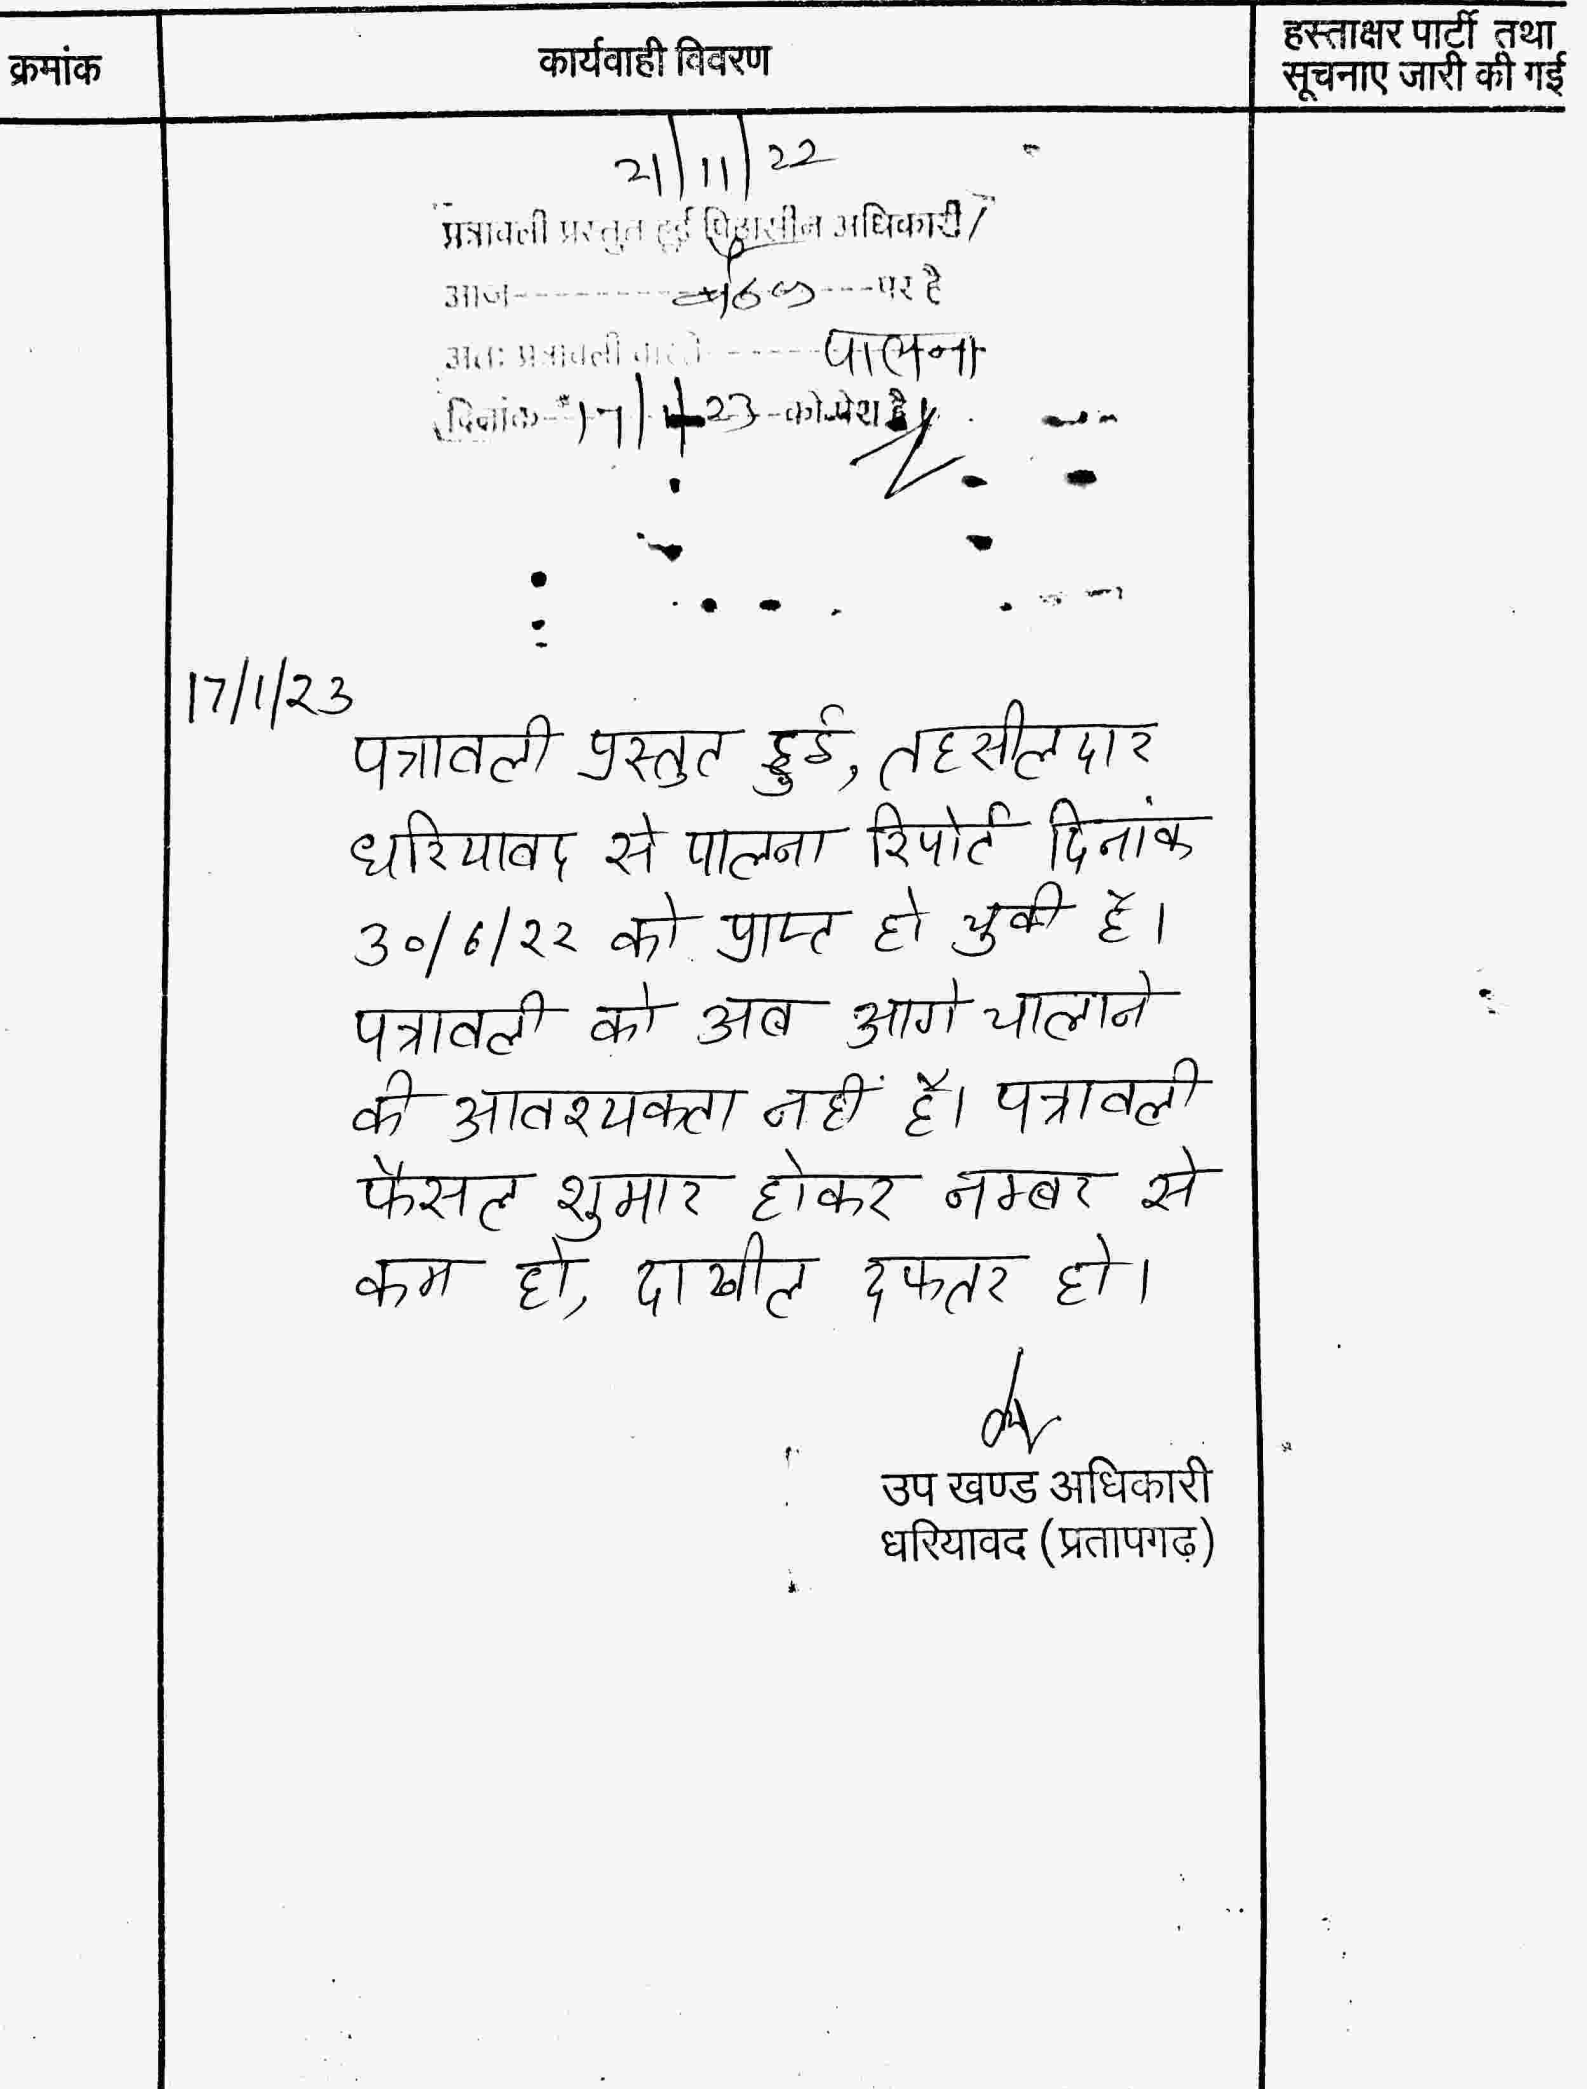 क्रमांक
कार्यवाही विवरण
हस्ताक्षर पार्टी तथा
सूचनाए जारी की गई
21/11/22
पत्रावली प्रस्तुत हुई पिठासीन अधिकारी/
आज---------बैठक---पर है
अतः पत्रावली वास्ते------पालना
दिनांक-17/1/23-को पेश है
17/1/23
पत्रावली प्रस्तुत हुई, तहसीलदार
धरियावद से पालना रिपोर्ट दिनांक
30/6/22 को प्राप्त हो चुकी है।
पत्रावली को अब आगे चालाने
की आवश्यकता नहीं है। पत्रावली
फैसल शुमार होकर नम्बर से
कम हो, दाखील दफतर हो।
उप खण्ड अधिकारी
धरियावद (प्रतापगढ़)